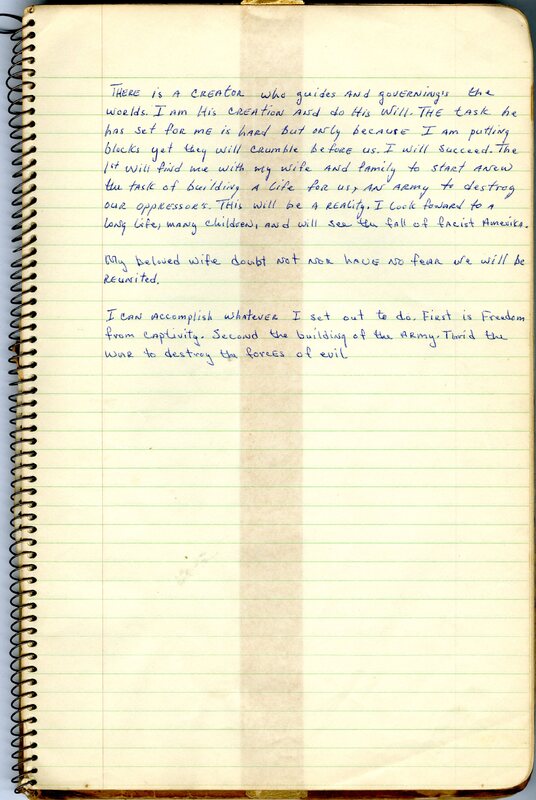 THERE is A CREATOR who guides AND governing's the
worlds. I am His CREATION AND do His Will. THE task he
has set for me is hard but only because I am putting
blocks yet they will crumble before us. I will succeed. The
1st Will find me with my wife AND family to start ANEW
the task of building A life for us, AN ARMY to destroy
OUR OPPRESSORS. THIS will be A REALITY. I Look foward to A
long life, many children, and will see the fall of facist AmeriKa.
My beloved wife doubt NOT NOR HAVE NO FEAR we will be
REUNITED.
I CAN ACCOMPLISH WHATEVER I set out to do. First is Freedom
from CAptivity. Second the building of the ARMY. Thrid the
WAR to destroy the forces of evil